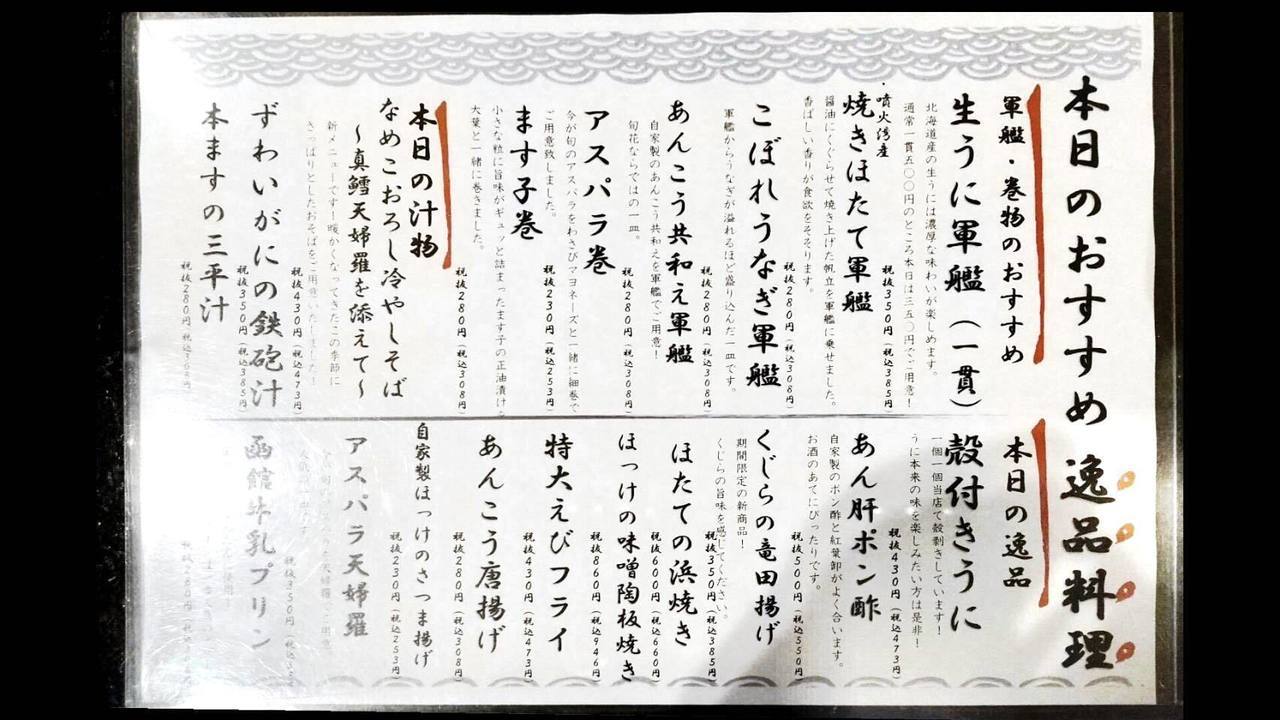 本日のおすすめ逸品料理
軍艦・巻物のおすすめ
生うに軍艦（一貫）
北海道産の生うには濃厚な味わいが楽しめます。
通常一貫五〇〇円のところ本日は三五〇円でご用意！
税抜350円（税込385円）
・噴火湾産
焼きほたて軍艦
醤油にくぐらせて焼き上げた帆立を軍艦に乗せました。
香ばしい香りが食欲をそそります。
税抜280円（税込308円）
こぼれうなぎ軍艦
軍艦からうなぎが溢れるほど盛り込んだ一皿です。
税抜280円（税込308円）
あんこう共和え軍艦
自家製のあんこう共和えを軍艦でご用意！
旬花ならではの一皿。
税抜280円（税込308円）
アスパラ巻
今が旬のアスパラをわさびマヨネーズと一緒に細巻で
ご用意致しました。
税抜230円（税込253円）
ます子巻
小さな粒に旨味がギュッと詰まったます子の正油漬けを
大葉と一緒に巻きました。
税抜280円（税込308円）
本日の汁物
なめこおろし冷やしそば
～真鱈天婦羅を添えて～
新メニューです！暖かくなってきたこの季節に
さっぱりとしたおそばをご用意いたしました！
税抜430円（税込473円）
ずわいがにの鉄砲汁
税抜350円（税込385円）
本ますの三平汁
税抜280円（税込308円）
本日の逸品
殻付きうに
一個一個当店で殻剥きしています！
うに本来の味を楽しみたい方は是非！
税抜430円（税込473円）
あん肝ポン酢
自家製のポン酢と紅葉卸がよく合います。
お酒のあてにぴったりです。
税抜500円（税込550円）
くじらの竜田揚げ
期間限定の新商品！
くじらの旨味を感じてください。
税抜350円（税込385円）
ほたての浜焼き
税抜600円（税込660円）
ほっけの味噌陶板焼き
税抜860円（税込946円）
特大えびフライ
税抜430円（税込473円）
あんこう唐揚げ
税抜280円（税込308円）
自家製ほっけのさつま揚げ
税抜230円（税込253円）
アスパラ天婦羅
税抜350円
函館牛乳プリン